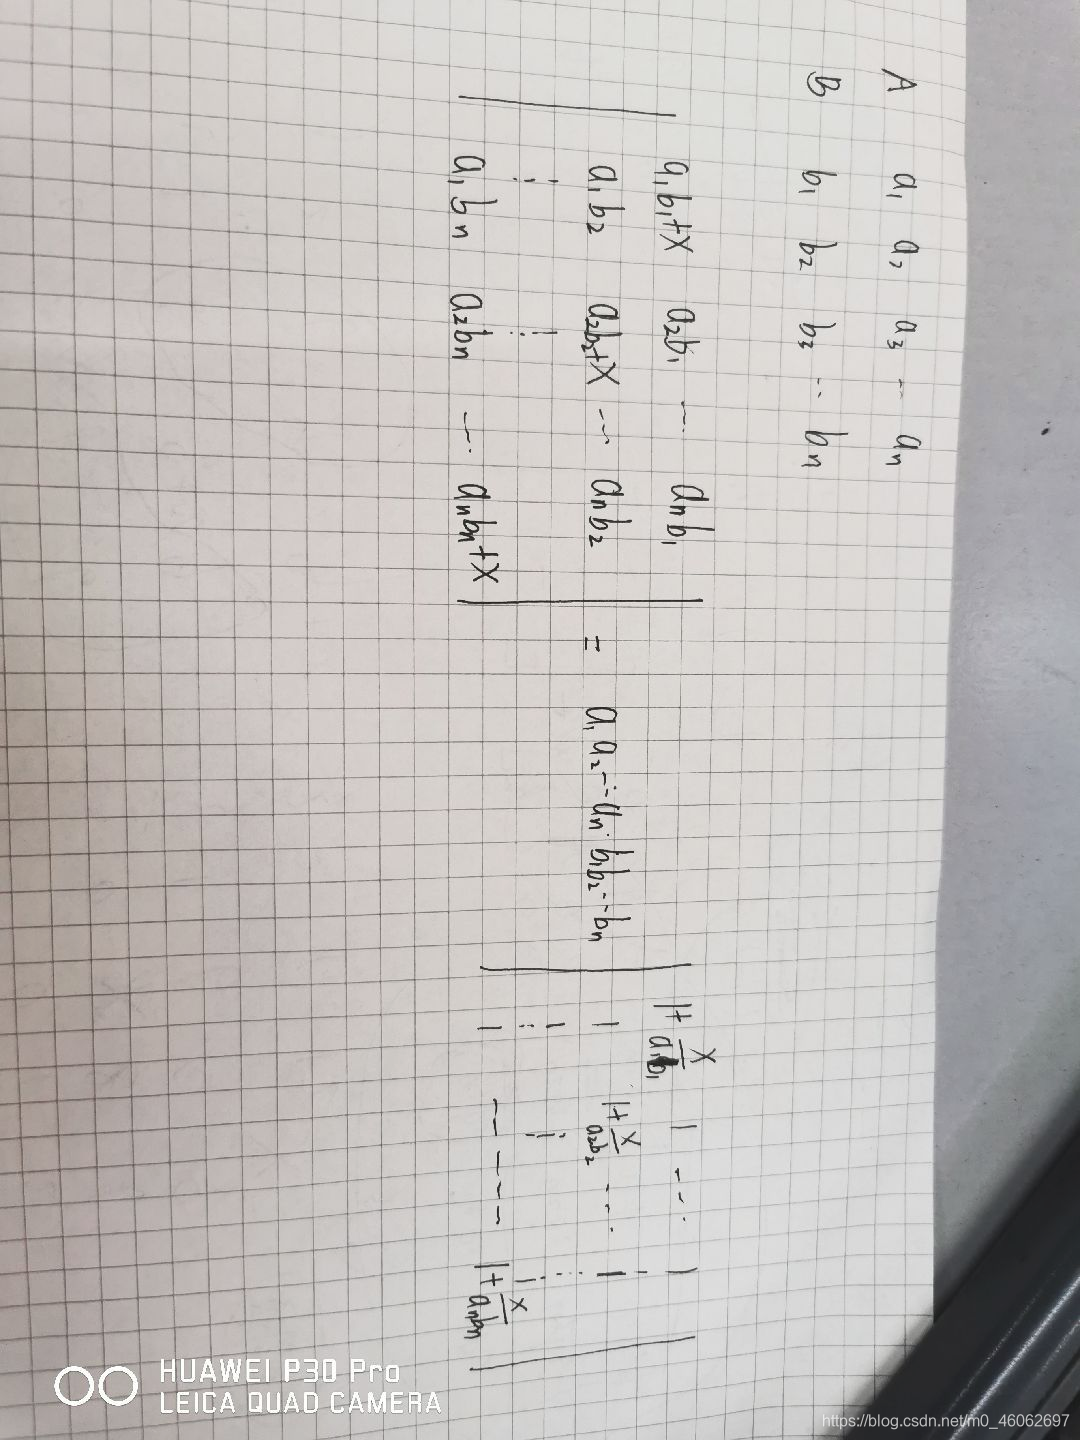 A a₁ a₂ a₃ ... aₙ
B b₁ b₂ b₃ ... bₙ
| a₁b₁+x a₂b₁ ... aₙb₁ | | 1+x/a₁b₁ 1 ... 1 |
| a₁b₂ a₂b₂+x ... aₙb₂ | = a₁a₂...aₙ·b₁b₂...bₙ | 1 1+x/a₂b₂ ... 1 |
| ⋮ ⋮ | | 1 ⋮ ⋮ 1 |
| a₁bₙ a₂bₙ ... aₙbₙ+x | | 1 ... 1+x/aₙbₙ |
HUAWEI P30 Pro
LEICA QUAD CAMERA
https://blog.csdn.net/m0_46062697